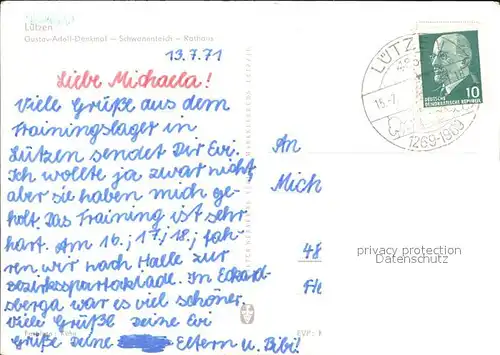 Lützen
Gustav-Adolf-Denkmal – Schwanenteich – Rathaus
13.7.71
Liebe Michaela!
Viele Grüße aus dem
Trainingslager in
Lützen sendet Dir Evi.
Ich wollte ja zwar nicht,
aber sie haben mich ge-
holt. Das Training ist sehr
hart. Am 16.; 17.; 18.; fah-
ren wir nach Halle zur
Bezirksspartakiade. In Eckardt-
sberga war es viel schöner.
Viele Grüße Deine Evi
Grüße Deine Eltern u. Bibi!
An
Mich
48
LÜTZE
15.-7.
1269-1969
10
DEUTSCHE
DEMOKRATISCHE REPUBLIK
privacy protection
Datenschutz